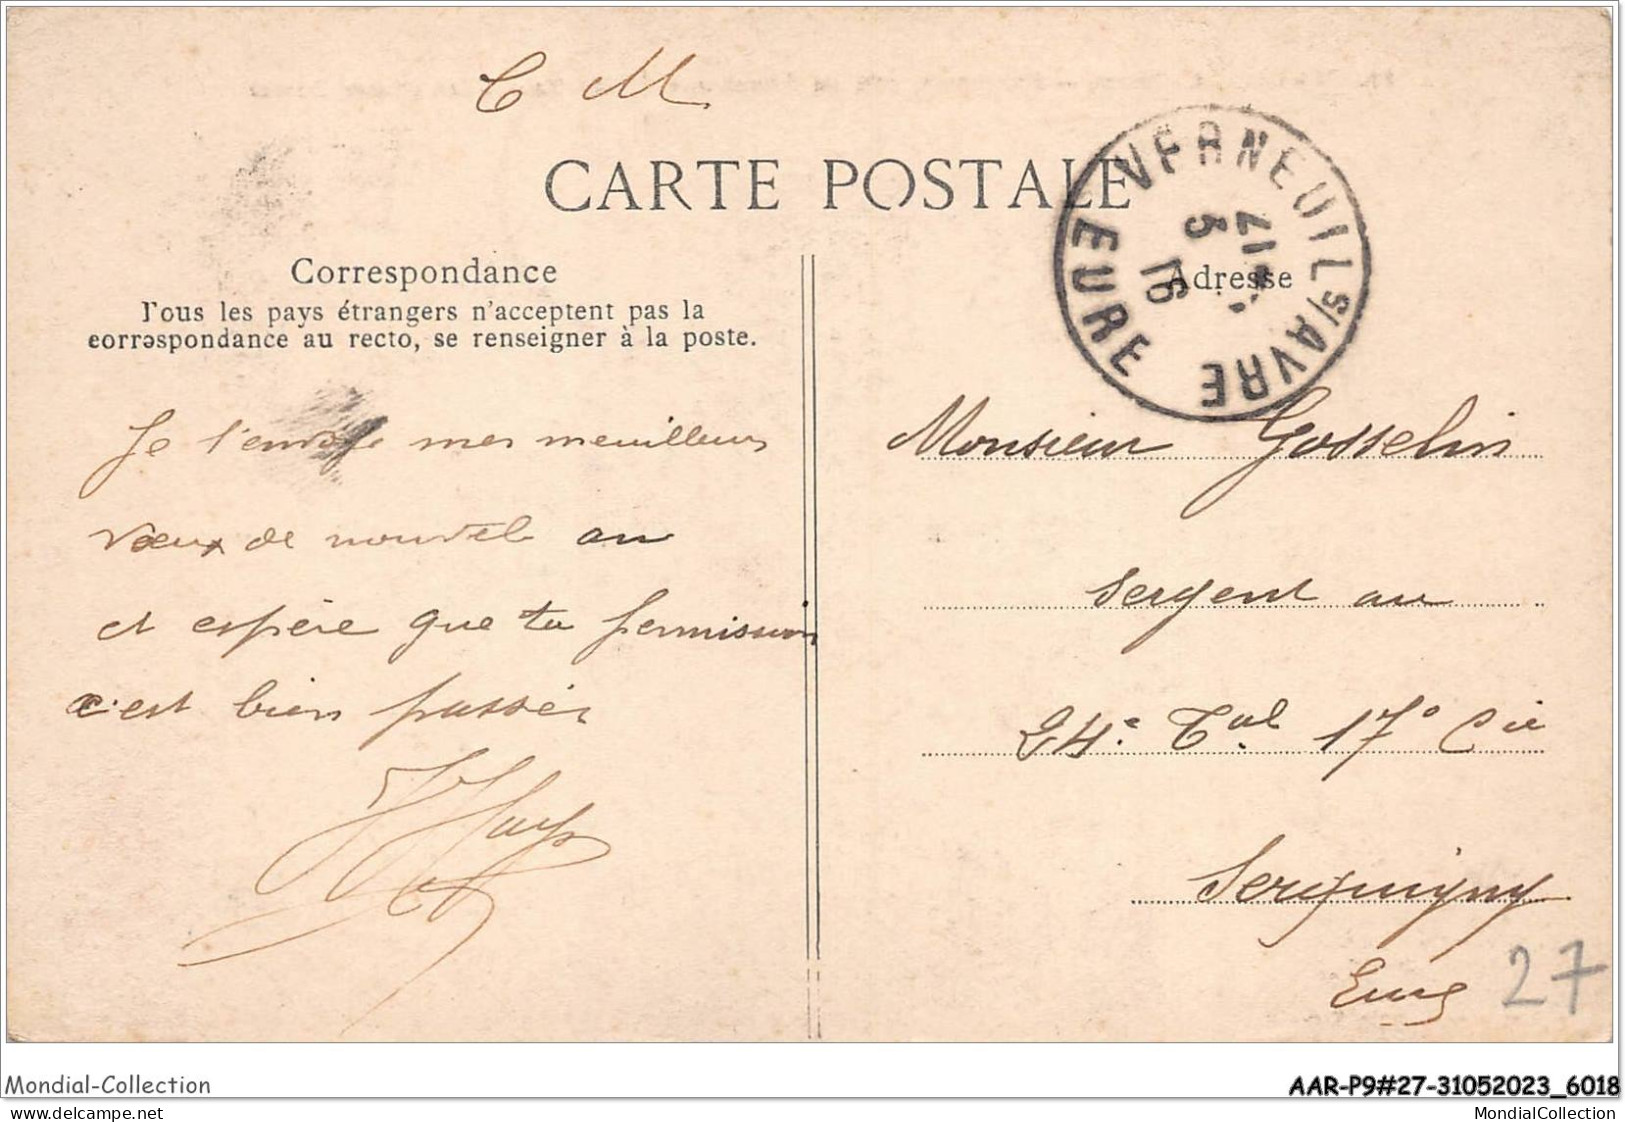 C M
CARTE POSTALE
Correspondance
Tous les pays étrangers n'acceptent pas la
correspondance au recto, se renseigner à la poste.
Je t'envoje mes meuilleurs
vœux de nouvel an
et espère que ta permission
c'est bien passér
VERNEUIL S/AVRE
EURE
17
3
16
Adresse
Monsieur Gosselin
sergent au
24e Tal 17° Cie
Serquigny
Eure
27
Mondial-Collection
AAR-P9#27-31052023_6018
MondialCollection